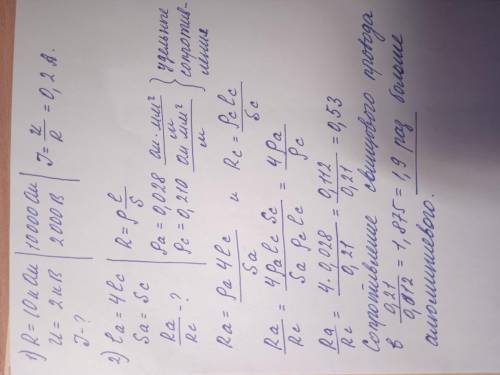 1) R = 10 кОм | 10 000 Ом | J = U/R = 0,2 А.
U = 2 кВ | 2000 В
J - ?
2) la = 4lc | R = ρ l/S
Sa = Sc | ρa = 0,028 Ом·мм²/м } удельные
Ra/Rc - ? | ρc = 0,210 Ом мм²/м } сопротив-
ления
Ra = ρa 4lc/Sa и Rc = ρc lc/Sc
Ra/Rc = 4ρa lc Sc/Sa ρc lc = 4ρa/ρc
Ra/Rc = 4·0,028/0,21 = 0,112/0,21 = 0,53
Сопротивление свинцового провода
в 0,21/0,112 = 1,875 = 1,9 раз более
алюминиевого.